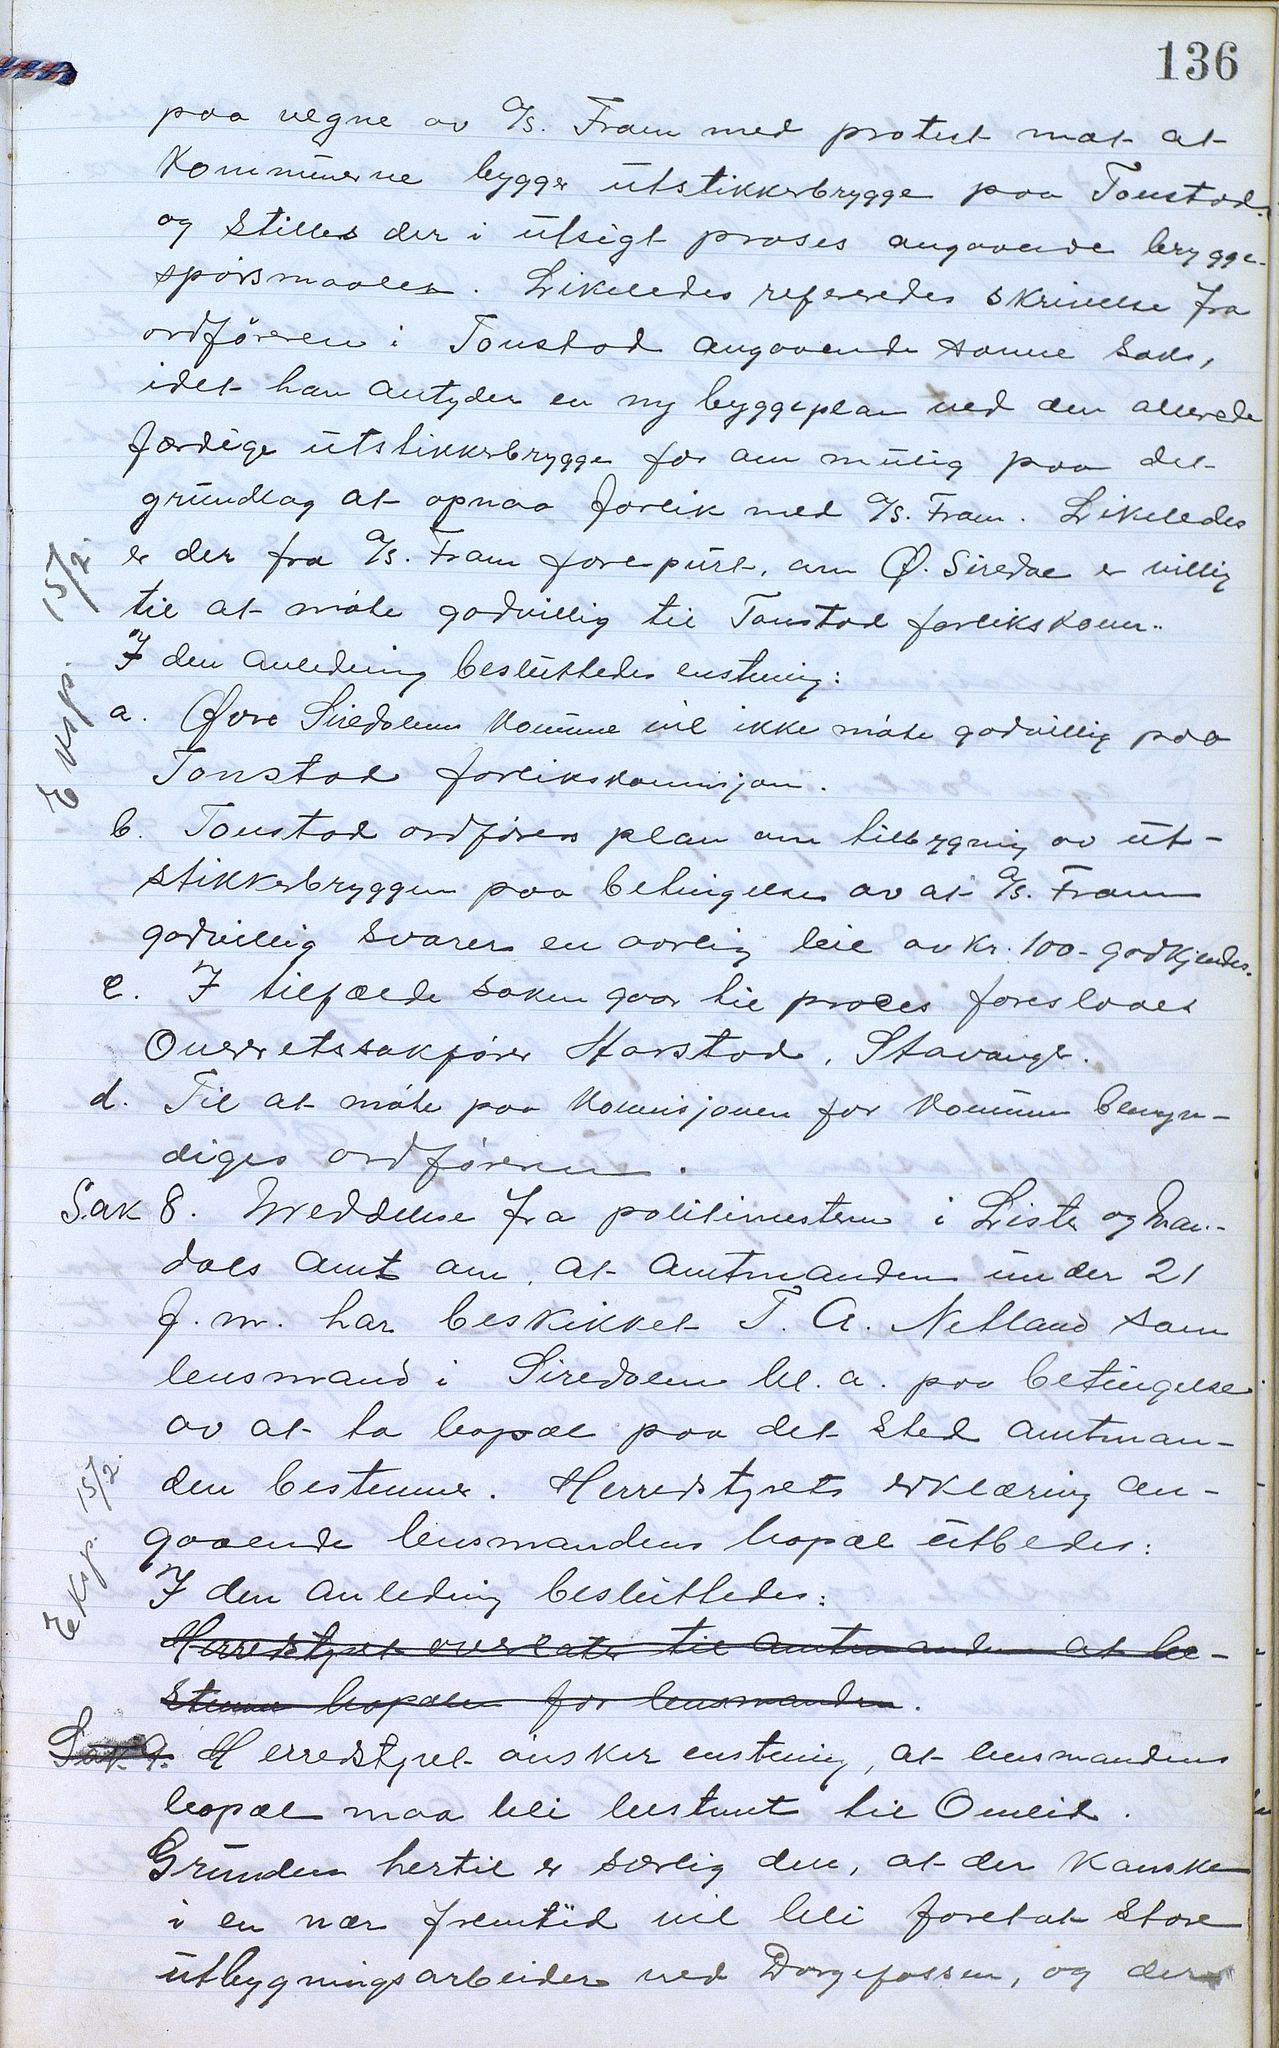 136
paa vegne av A/S. Fram med protest mot at
Kommunerne bygger utstikkerbrygge paa Tonstad
og stilles der i utsigt proses angaaende brygge-
spørsmaalet. Likeledes refereredes skrivelse fra
ordføreren i Tonstad angaaende samme sak,
idet han antyder en ny byggeplan ved den allerede
færdige utstikkerbrygge for om mulig paa det
grundlag at opnaa forlik med A/S. Fram. Likeledes
er der fra A/S. Fram forespurt, om Ø. Siredal er villig
til at møte godvillig til Tonstad forlikskom..
I den anledning besluttedes enstemig:
Eksp. 15/2.
a. Øvre Siredalens Komune vil ikke møte godvillig paa
Tonstad forlikskomisjon.
b. Tonstad ordførers plan om tilbygning av ut-
stikkerbryggen paa betingelse av at A/S. Fram
godvillig svarer en aarlig leie av kr. 100- godkjendes.
c. I tilfælde saken gaar til proces foreslaaes
Overretssakfører Harstad, Stavanger.
d. Til at møte paa Komisjonen for Komunen bemyn-
diges ordføreren.
Sak 8. Meddelelse fra politimesteren i Lister og Man-
dals Amt om, at Amtmanden under 21
f. m. har beskikket T. A. Netland som
lensmand i Siredalen bl. a. paa betingelse
av at ta bopæl paa det sted Amtman-
den bestemmer. Herredstyrets erklæring an-
gaaende lensmandens bopæl utbedes:
Eksp. 15/2.
I den anledning besluttedes:
Herredstyret overlater til Amtmanden at be-
stemme bopælen for lensmanden.
Sak 9. Herredstyret ønsker enstemig, at lensmandens
bopæl maa bli bestemt til Omlid.
Grunden hertil er særlig den, at der kanske
i en nær fremtid vil bli foretat store
utbygningsarbeider ved Dorgefossen, og der